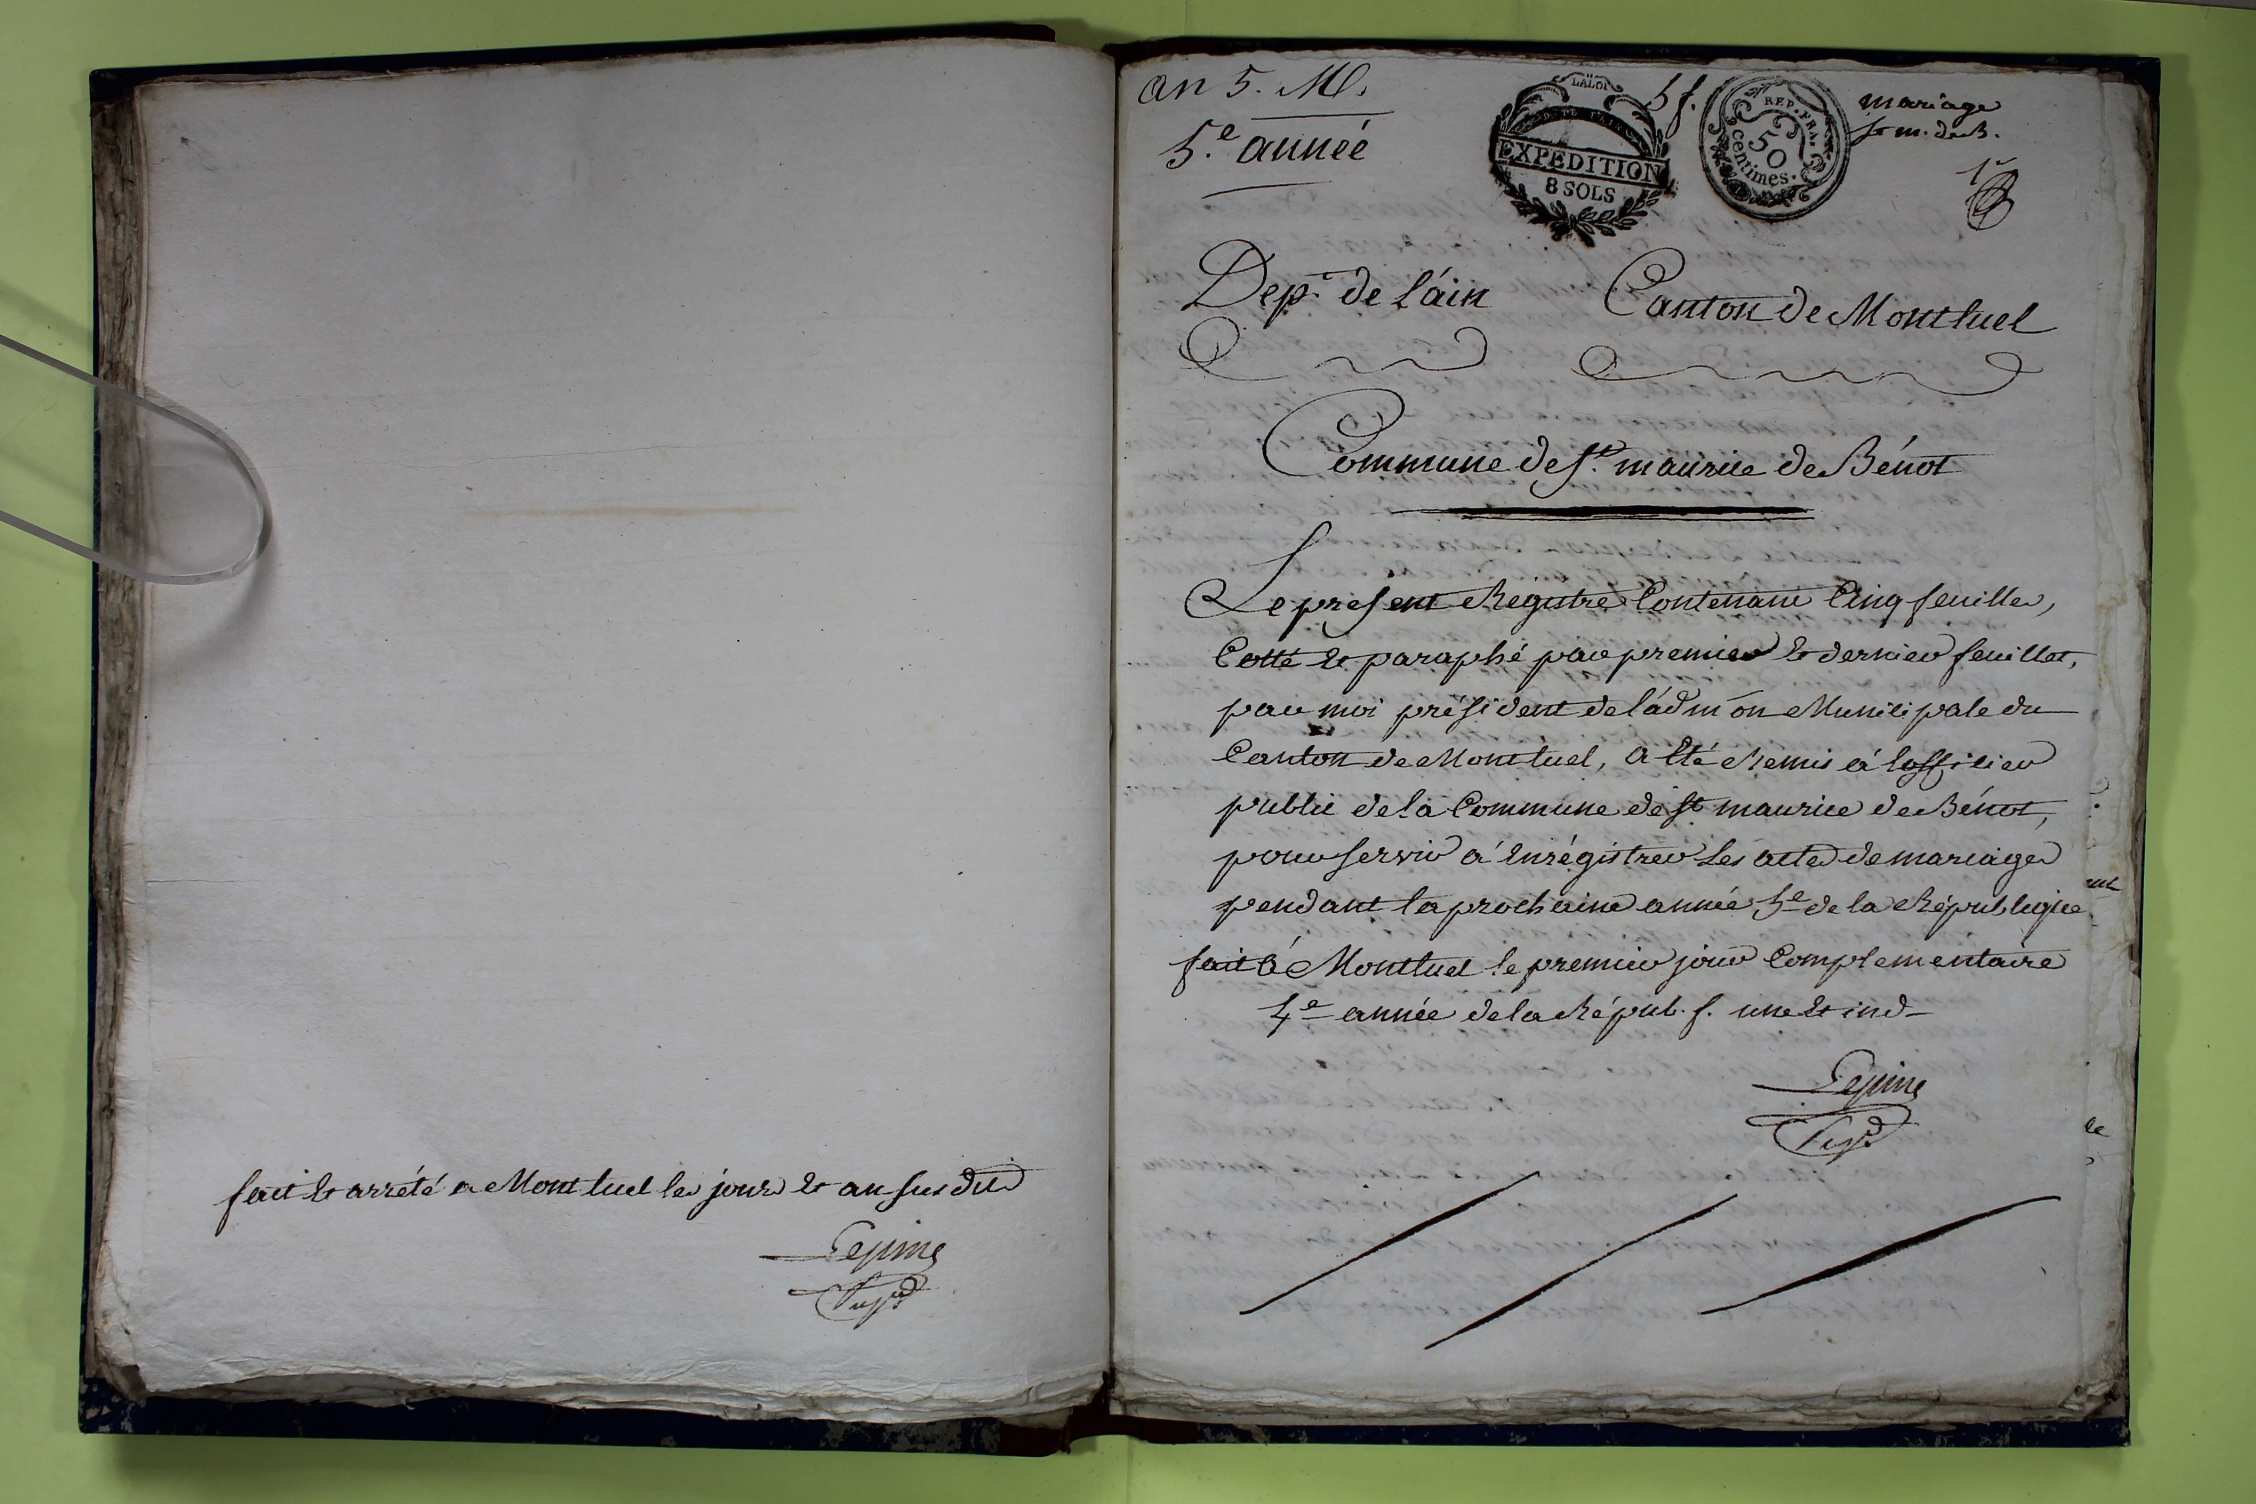 fait et arrété a Montluel les jours et an susdits
Lepine
an 5. M.
5.e année
LA LOI
EXPEDITION
8 SOLS
5 f.
REP. FRA.
50
centimes.
mariage
St m. de B.
1r
Dep.t de l'ain
Canton de Montluel
Commune de St. maurice de Bénot
Le présent Régistre Contenant Cinq feuilles,
Cotté et paraphé par premier et dernier feuillet,
par moi président de l'admõn Municipale du
Canton de Montluel, a Eté Remis à l'officier
public de la Commune de St maurice de Bénot,
pour servir à Enrégistrer Les actes de mariages
pendant la prochaine année 5e de la République
fait à Montluel le premier jour Complementaire
4e année de la Répub. f. une et ind
Lepine